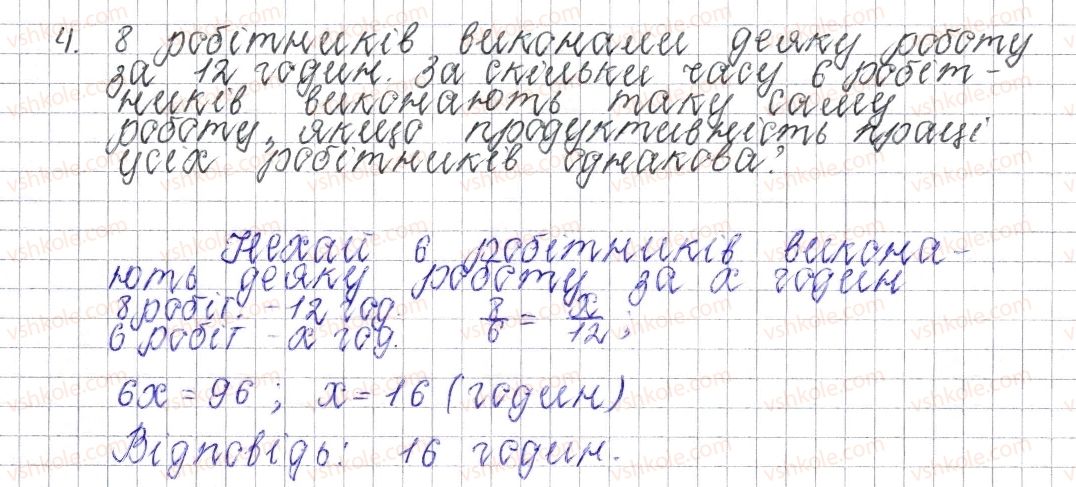 4. 8 робітників виконали деяку роботу
за 12 годин. За скільки часу 6 робіт-
ників виконають таку саму
роботу, якщо продуктивність праці
усіх робітників однакова?
Нехай 6 робітників викона-
ють деяку роботу за x годин
8 робіт. - 12 год. 8/6 = x/12;
6 робіт - x год.
6x = 96; x = 16 (годин)
Відповідь: 16 годин.